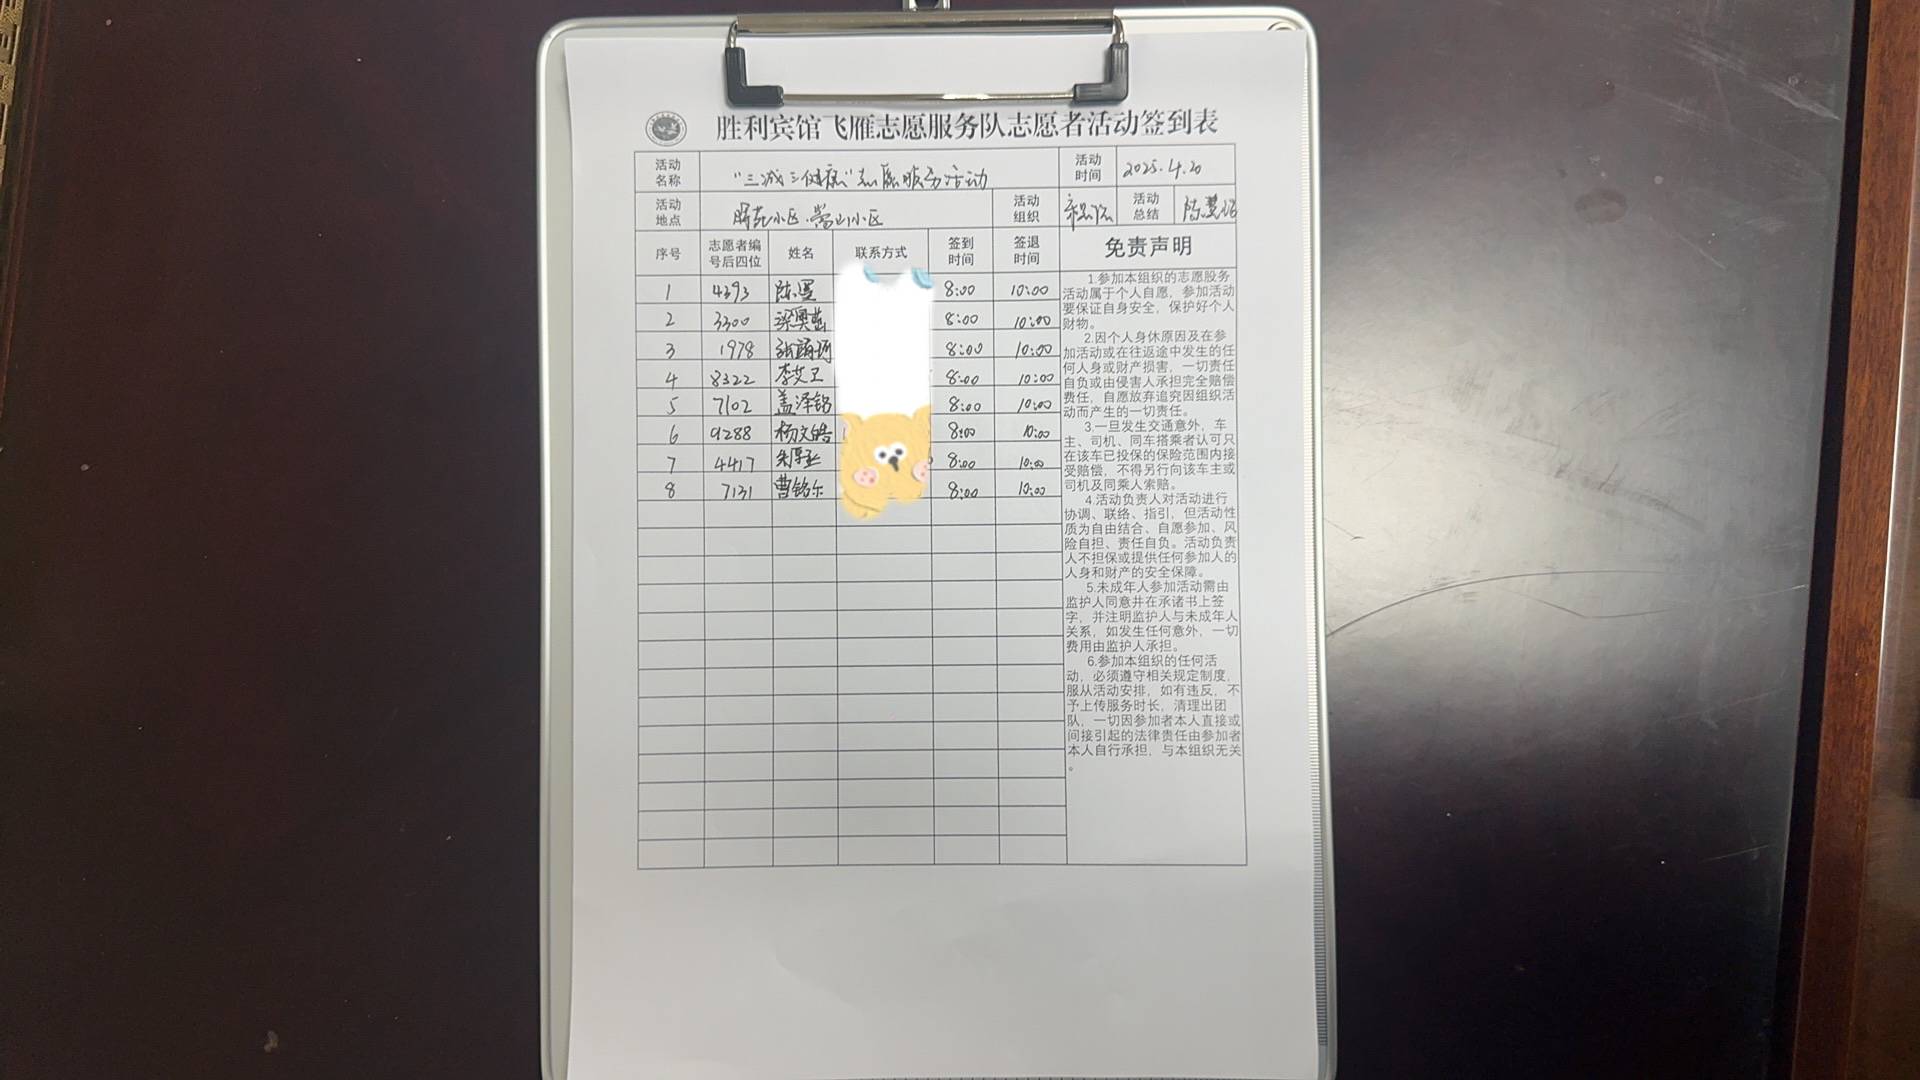 胜利宾馆飞雁志愿服务队志愿者活动签到表
活动名称 “三减三健康”志愿服务活动 活动时间 2025.4.20
活动地点 小区.嵩山小区 活动组织 活动总结 陈慧
序号 志愿者编号后四位 姓名 联系方式 签到时间 签退时间 免责声明
1 4393 陈墨 8:00 10:00
2 3300 梁奥 8:00 10:00
3 1978 张 8:00 10:00
4 8322 李艾卫 8:00 10:00
5 7102 盖泽铭 8:00 10:00
6 9288 杨文皓 8:00 10:00
7 4417 8:00 10:00
8 7131 曹铭乐 8:00 10:00
1.参加本组织的志愿股务
活动属于个人自愿，参加活动
要保证自身安全，保护好个人
财物。
2.因个人身休原因及在参
加活动或在往返途中发生的任
何人身或财产损害，一切责任
自负或由侵害人承担完全赔偿
费任，自愿放弃追究因组织活
动而产生的一切责任。
3.一旦发生交通意外，车
主、司机、同车搭乘者认可只
在该车已投保的保险范围内接
受赔偿，不得另行向该车主或
司机及同乘人索赔。
4.活动负责人对活动进行
协调、联络、指引，但活动性
质为自由结合、自愿参加、风
险自担、责任自负。活动负责
人不担保或提供任何参加人的
人身和财产的安全保障。
5.未成年人参加活动需由
监护人同意井在承诸书上签
字，并注明监护人与未成年人
关系，如发生任何意外，一切
费用由监护人承担。
6.参加本组织的任何活
动，必须遵守相关规定制度，
服从活动安排，如有违反，不
予上传服务时长，清理出团
队，一切因参加者本人直接或
间接引起的法律责任由参加者
本人自行承担，与本组织无关
。